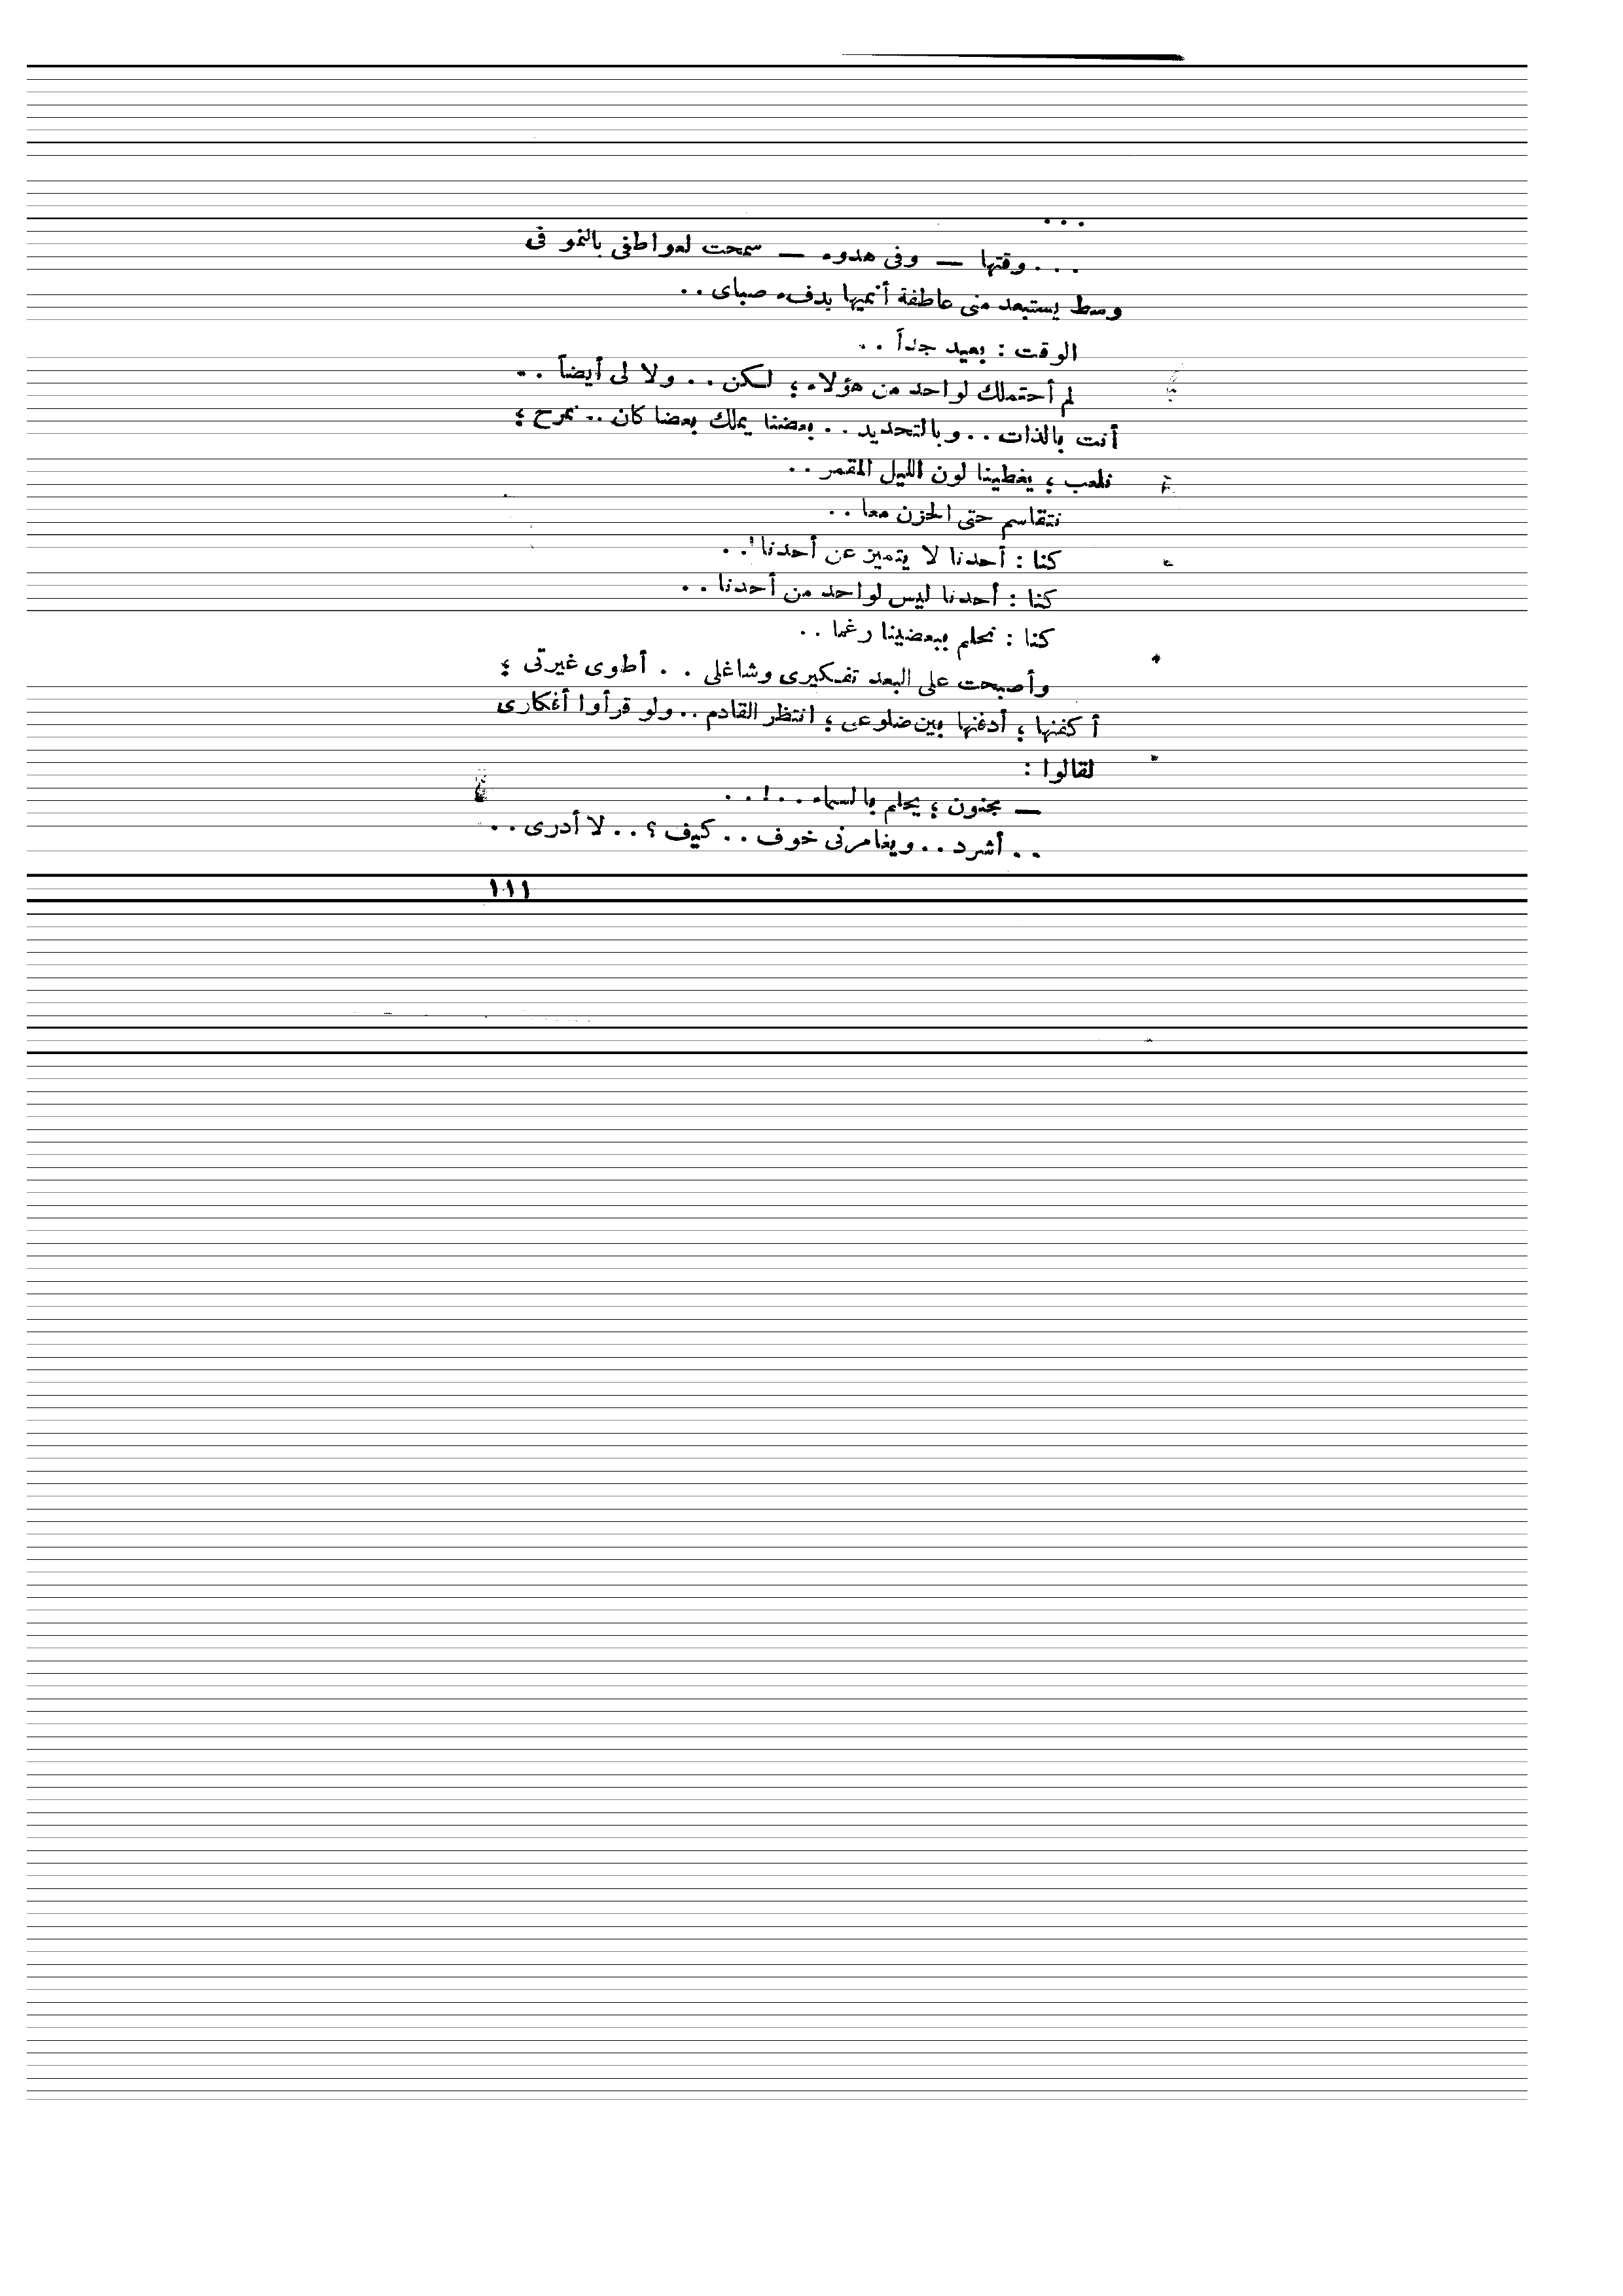 ...
... وقتها — وفى هدوء — سمحت لعواطفى بالنمو فى
وسط يستبعد منى عاطفة أنميها بدفء صباى ..
الوقت : بعيد جداً ..
لم أحتملك لواحد من هؤلاء ؛ لكن .. ولا لى أيضاً ..
أنت بالذات .. وبالتحديد .. بعضنا يملك بعضا كان .. نمرح ؛
نلعب ؛ يغطينا لون الليل المقمر ..
نتقاسم حتى الحزن معا ..
كنا : أحدنا لا يتميز عن أحدنا ! ..
كنا : أحدنا ليس لواحد من أحدنا ..
كنا : نحلم ببعضينا رغما ..
وأصبحت على البعد تفكيرى وشاغلى .. أطوى غيرتى ؛
أكفنها ؛ أدفنها بين ضلوعى ؛ انتظر القادم .. ولو قرأوا أفكارى
لقالوا :
— مجنون ؛ يحلم بالسماء .. ! ..
.. أشرد .. ويغامرنى خوف .. كيف ؟ .. لا أدرى ..
١١١